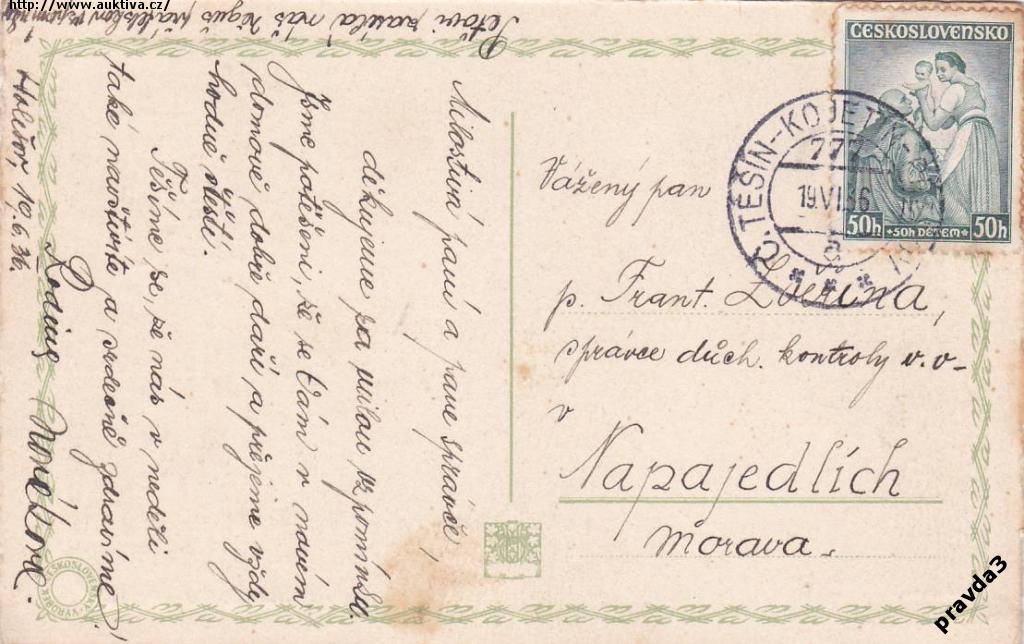 http://www.auktiva.cz/
Milostivá paní a pane správče,
děkujeme za milou vzpomínku.
Jsme potěšeni, že se Vám v novém
domově dobře daří a přejeme vždy
hodně štěstí.
Těšíme se, že nás v neděli
také navštívíte a srdečně zdravíme!
Holešov, 19.6.36.
ČESKOSLOVENSKO
50h
+50h DĚTEM
50h
Č. TĚŠÍN-KOJETÍN
19.VI.36
a
Vážený pan
p. Frant. Zvěřina,
správce důch. kontroly v. v.
v
Napajedlích
Morava.
pravda3